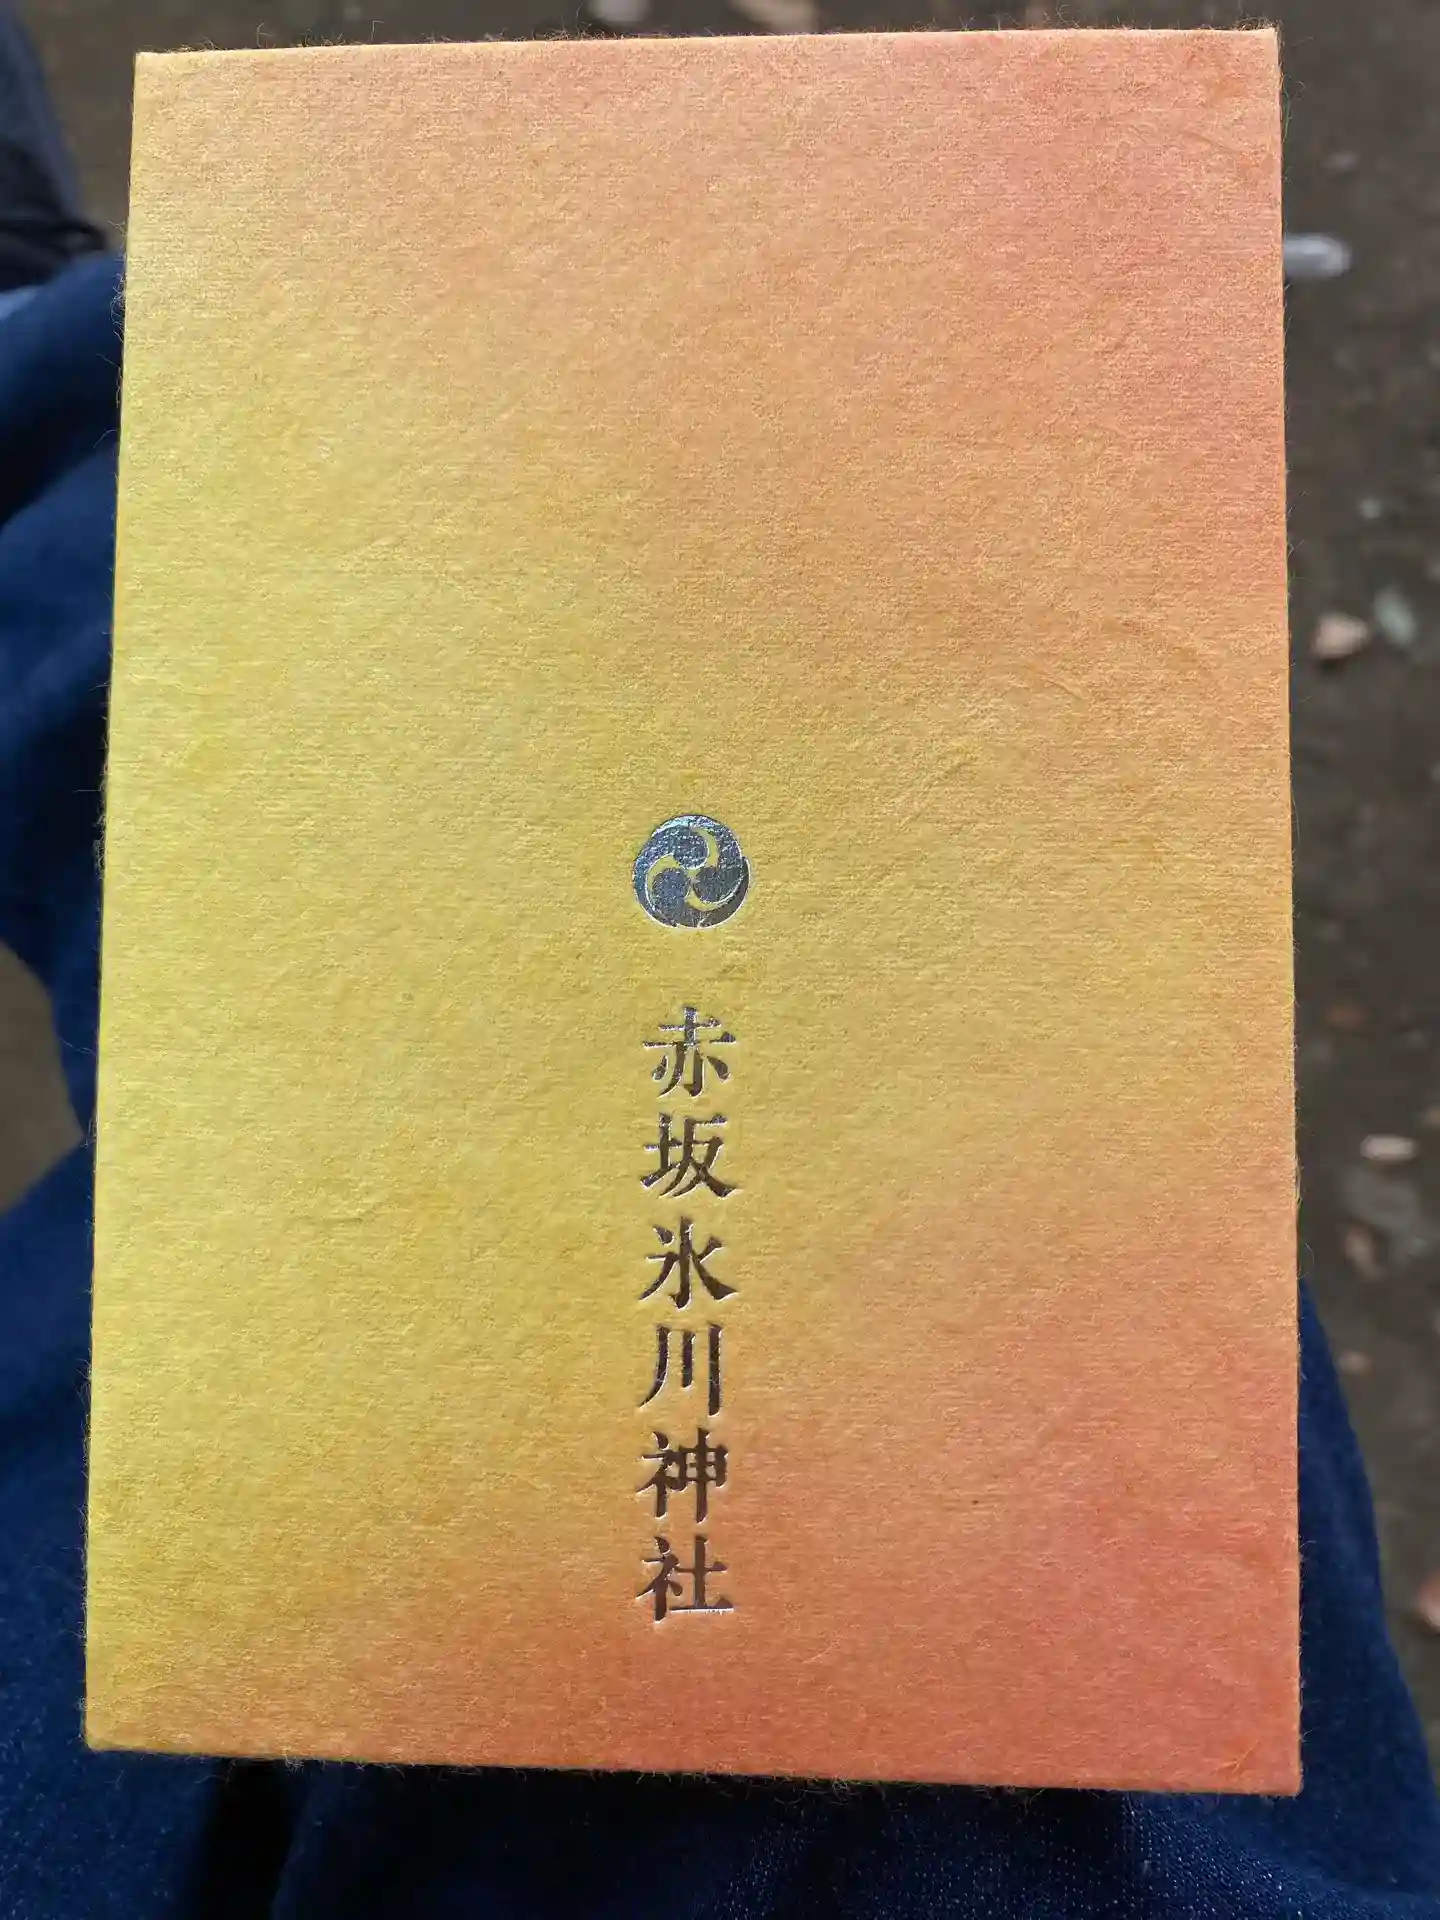 赤坂氷川神社